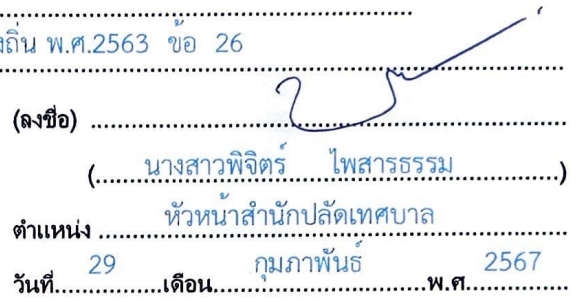 งถิ่น พ.ศ.2563 ข้อ 26
(ลงชื่อ) ..............................
(..... นางสาวพิจิตร์ ไพสารธรรม .....)
ตำแหน่ง ..... หัวหน้าสำนักปลัดเทศบาล .....
วันที่..... 29 .....เดือน..... กุมภาพันธ์ .....พ.ศ..... 2567 .....